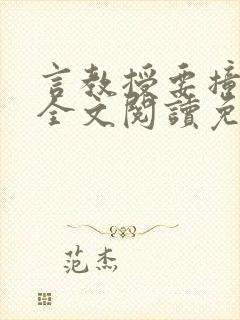 言教授要撞
全文閱讀免
范杰